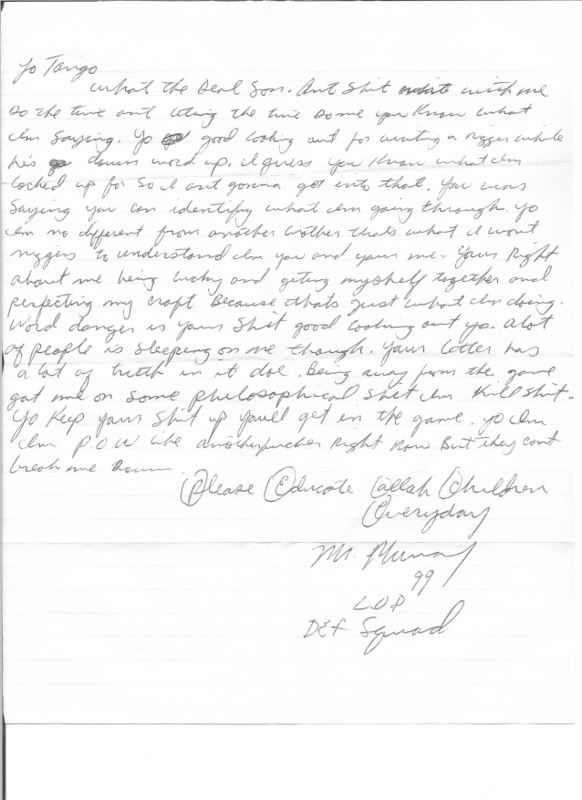 Yo Tango
What the Deal Son. Ant Shit with me
Do the time ant leting the time Do me you Know what
Im Saying. Yo good looking out for writing a nigger while
he's down word up. I guess you Know what Im
locked up for So I ant gonna get into that. You was
Saying you can identifiy what Im going through. yo
Im no different from another brother thats what I wont
niggers to understand Im you and your me. Your Right
about me being lucky and geting myshelf together and
perfecting my craft Because thats Just what Im doing.
Word danger is your Shit good looking out yo. a lot
of people is Sleeping on me though. Your letter has
a lot of truth in it doe. Being away from the game
got me on Some philosophical Shit Im Kill Shit.
Yo Keep your Shit up You'll get in the game. yo Im
Im P O W like a Right now But they cont
break me Down.
Please Educate Allah Children
Everyday
Mr. Murray
99
L.O.D
DEF Squad